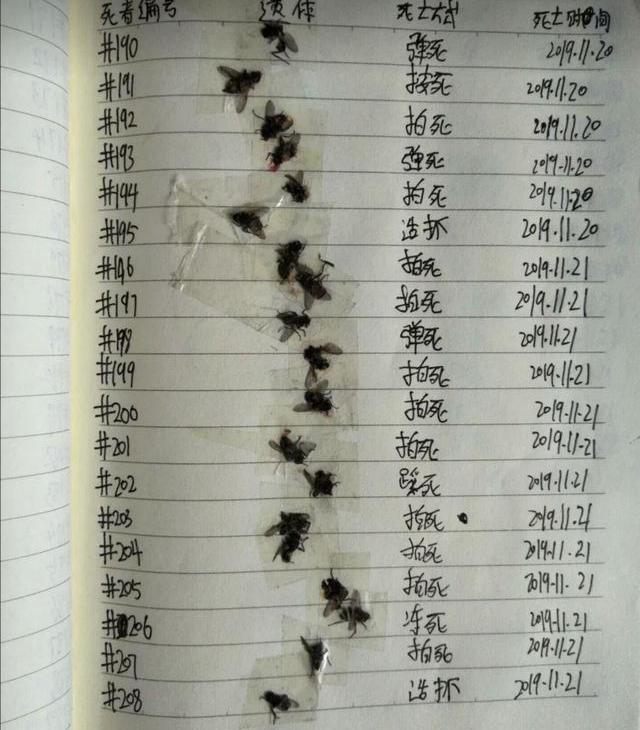 死者编号 遗体 死亡方式 死亡时间
#190 弹死 2019.11.20
#191 按死 2019.11.20
#192 拍死 2019.11.20
#193 弹死 2019.11.20
#194 拍死 2019.11.20
#195 活抓 2019.11.20
#196 拍死 2019.11.21
#197 拍死 2019.11.21
#198 弹死 2019.11.21
#199 拍死 2019.11.21
#200 拍死 2019.11.21
#201 拍死 2019.11.21
#202 踩死 2019.11.21
#203 拍死 2019.11.21
#204 拍死 2019.11.21
#205 拍死 2019.11.21
#206 冻死 2019.11.21
#207 拍死 2019.11.21
#208 活抓 2019.11.21